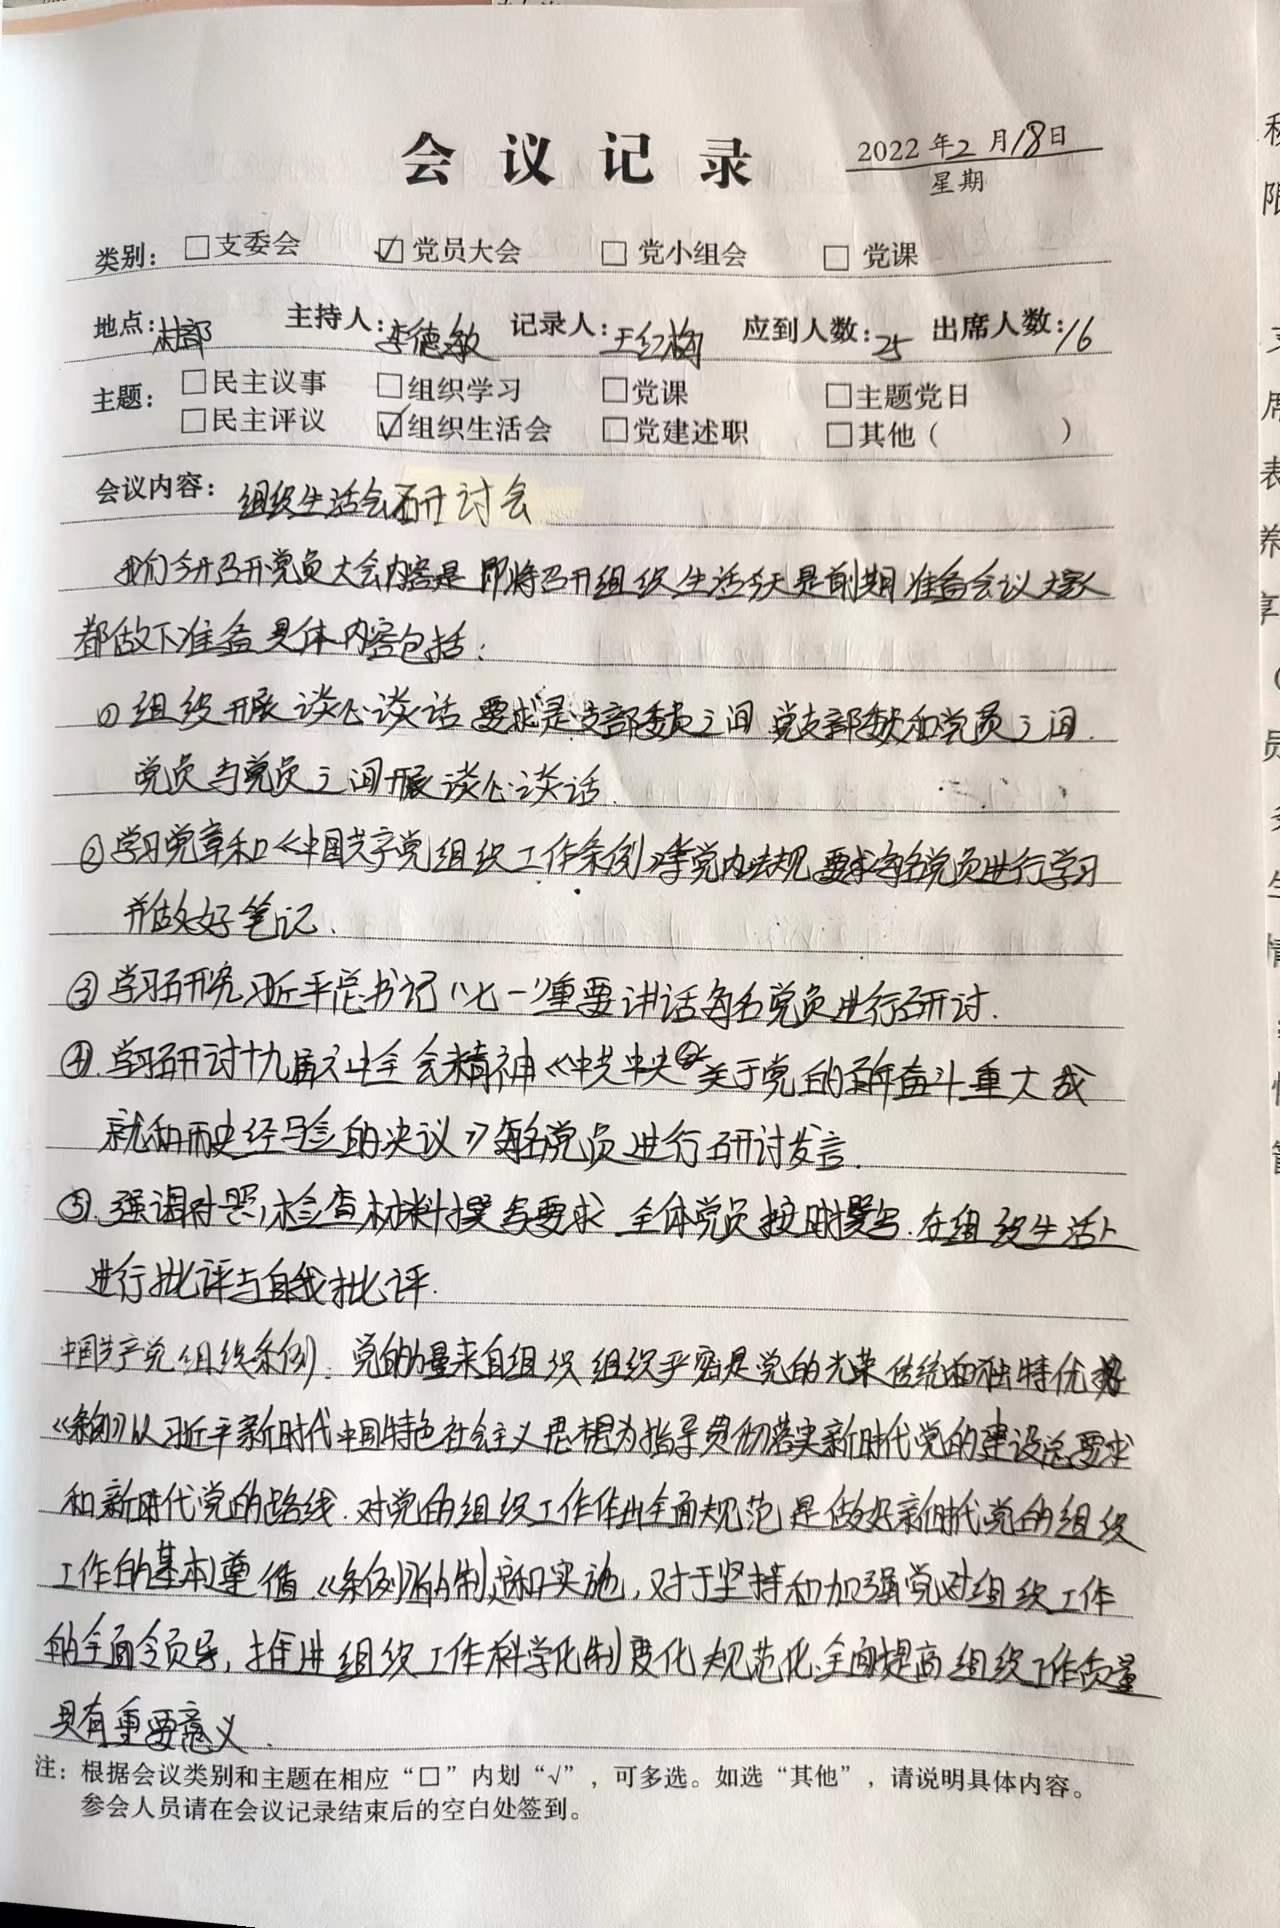 会议记录
2022年2月18日
星期
类别：□支委会 ☑党员大会 □党小组会 □党课
地点：村部 主持人：李德敏 记录人：王红梅 应到人数：25 出席人数：16
主题：□民主议事 □组织学习 □党课 □主题党日
□民主评议 ☑组织生活会 □党建述职 □其他（ ）
会议内容：组织生活会研讨会
我们今天召开党员大会内容是 即将召开组织生活今天是前期准备会议 大家
都做下准备 具体内容包括：
①组织开展谈心谈话 要求是支部委员之间 党支部委员和党员之间.
党员与党员之间开展谈心谈话.
②学习党章和《中国共产党组织工作条例》等党内法规 要求每名党员进行学习
并做好笔记.
③学习研究习近平总书记“七一”重要讲话 每名党员进行研讨.
④.学习研讨十九届六中全会精神《中共中央关于党的百年奋斗重大成
就和历史经验的决议》每名党员进行研讨发言.
⑤.强调对照检查材料撰写要求 全体党员按时撰写.在组织生活上
进行批评与自我批评.
中国共产党组织条例. 党的力量来自组织 组织严密是党的光荣传统和独特优势
《条例》以习近平新时代中国特色社会主义思想为指导 贯彻落实新时代党的建设总要求
和新时代党的路线.对党的组织工作作出全面规范 是做好新时代党的组织
工作的基本遵循.《条例》的制定和实施,对于坚持和加强党对组织工作
的全面领导,推进组织工作科学化制度化规范化.全面提高组织工作质量
具有重要意义.
注：根据会议类别和主题在相应“□”内划“√”，可多选。如选“其他”，请说明具体内容。
参会人员请在会议记录结束后的空白处签到。